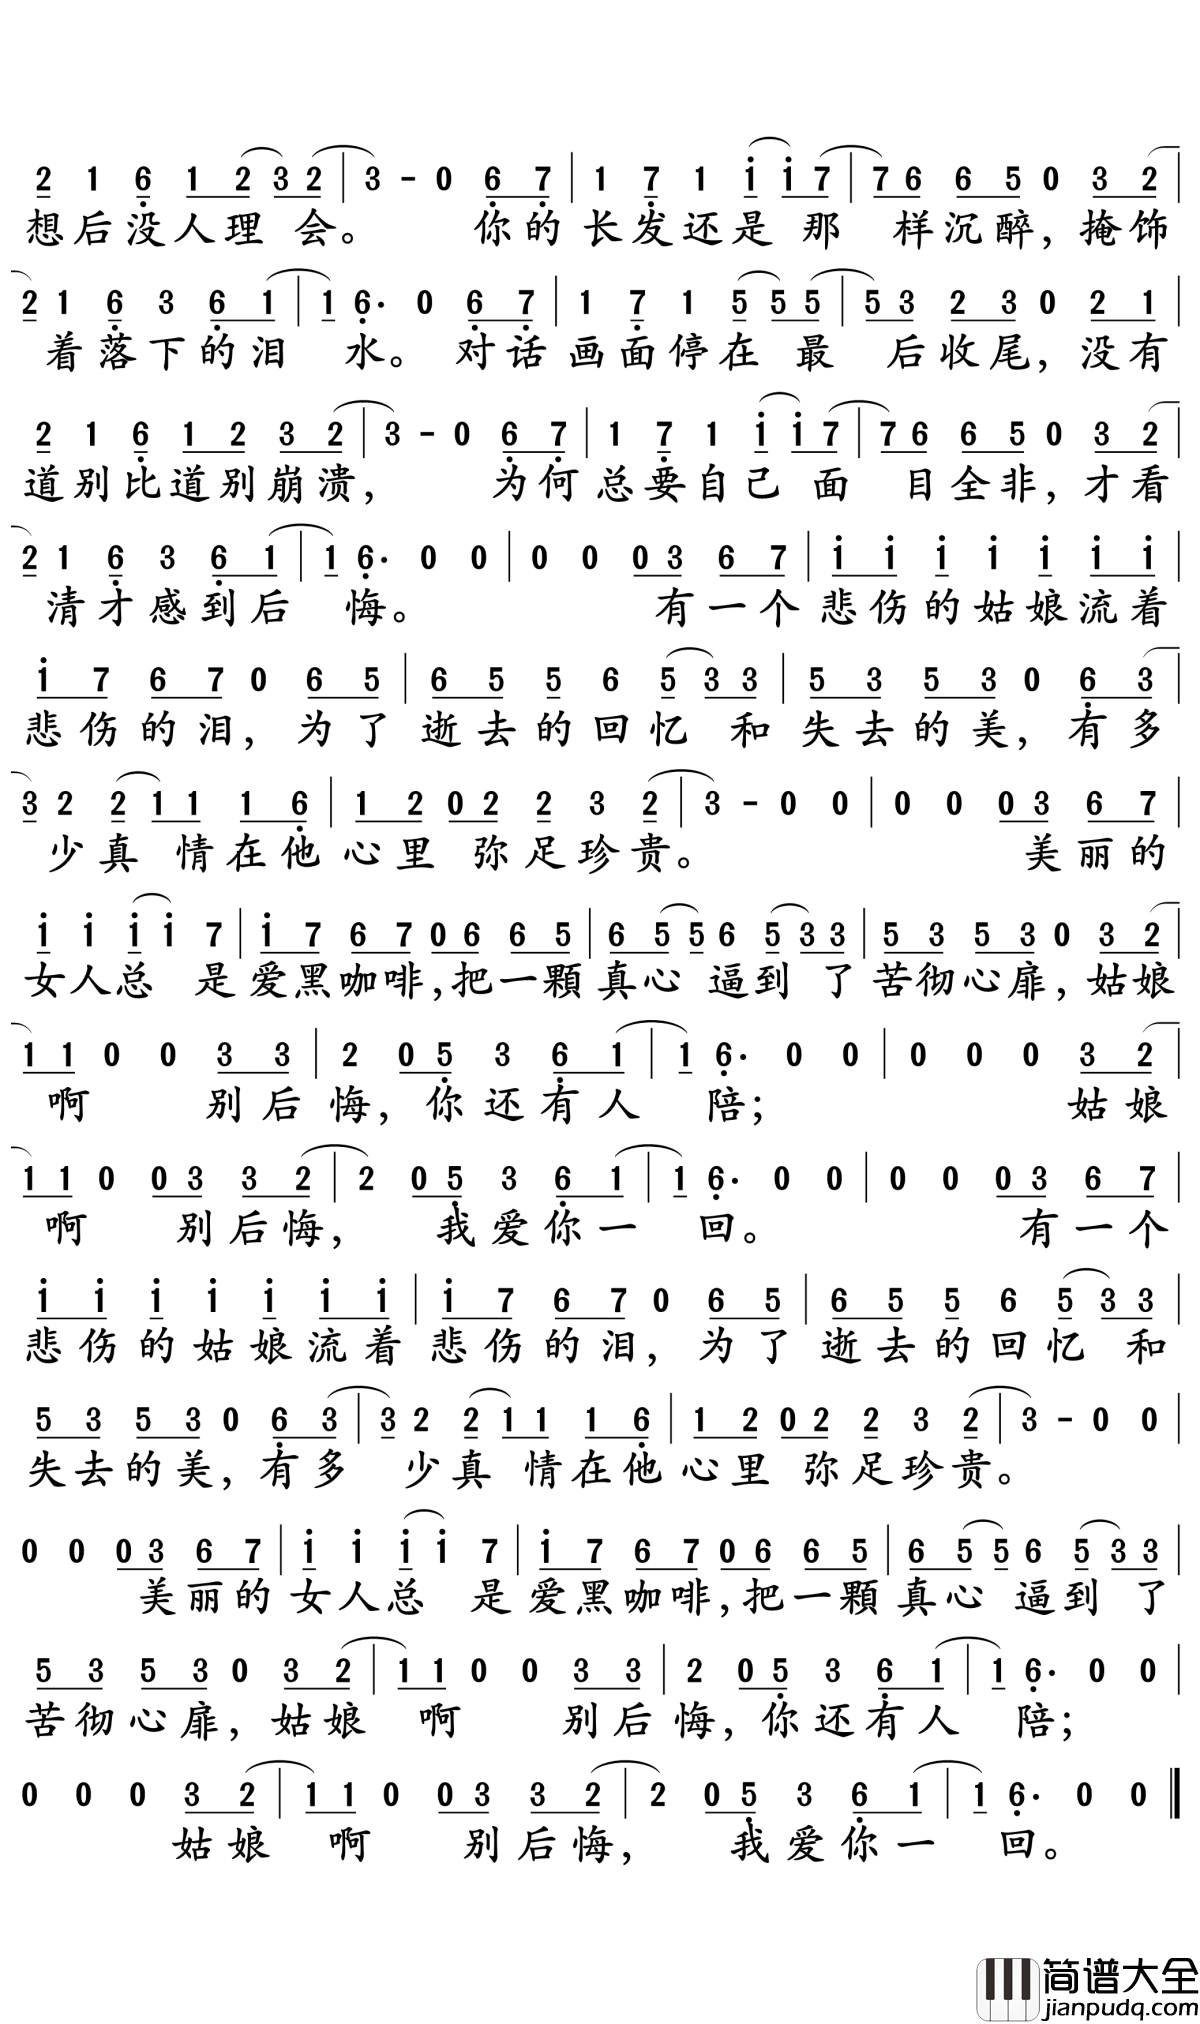 2 1 6 1 2 3 2 | 3 - 0 6 7 | 1 7 1 i i 7 | 7 6 6 5 0 3 2 |
想后没人理 会。 你的长发还是 那 样沉醉，掩饰
2 1 6 3 6 1 | 1 6· 0 6 7 | 1 7 1 5 5 5 | 5 3 2 3 0 2 1 |
着落下的泪 水。 对话画面停在 最 后收尾，没有
2 1 6 1 2 3 2 | 3 - 0 6 7 | 1 7 1 i i 7 | 7 6 6 5 0 3 2 |
道别比道别崩溃， 为何总要自己 面 目全非，才看
2 1 6 3 6 1 | 1 6· 0 0 | 0 0 0 3 6 7 | i i i i i i i |
清才感到后 悔。 有一个悲伤的姑娘流着
i 7 6 7 0 6 5 | 6 5 5 6 5 3 3 | 5 3 5 3 0 6 3 |
悲伤的泪，为了逝去的回忆 和失去的美，有多
3 2 2 1 1 1 6 | 1 2 0 2 2 3 2 | 3 - 0 0 | 0 0 0 3 6 7 |
少真 情在他心里 弥足珍贵。 美丽的
i i i i 7 | i 7 6 7 0 6 6 5 | 6 5 5 6 5 3 3 | 5 3 5 3 0 3 2 |
女人总 是爱黑咖啡，把一顆真心 逼到 了苦彻心扉，姑娘
1 1 0 0 3 3 | 2 0 5 3 6 1 | 1 6· 0 0 | 0 0 0 3 2 |
啊 别后悔，你还有人 陪； 姑娘
1 1 0 0 3 3 2 | 2 0 5 3 6 1 | 1 6· 0 0 | 0 0 0 3 6 7 |
啊 别后悔， 我爱你一 回。 有一个
i i i i i i i | i 7 6 7 0 6 5 | 6 5 5 6 5 3 3 |
悲伤的姑娘流着悲伤的泪，为了逝去的回忆 和
5 3 5 3 0 6 3 | 3 2 2 1 1 1 6 | 1 2 0 2 2 3 2 | 3 - 0 0 |
失去的美，有多 少真 情在他心里 弥足珍贵。
0 0 0 3 6 7 | i i i i 7 | i 7 6 7 0 6 6 5 | 6 5 5 6 5 3 3 |
美丽的女人总 是爱黑咖啡，把一顆真心 逼到 了
5 3 5 3 0 3 2 | 1 1 0 0 3 3 | 2 0 5 3 6 1 | 1 6· 0 0 |
苦彻心扉，姑娘 啊 别后悔，你还有人 陪；
0 0 0 3 2 | 1 1 0 0 3 3 2 | 2 0 5 3 6 1 | 1 6· 0 0 ‖
姑娘 啊 别后悔， 我爱你一 回。
简谱大全
jianpudq.com